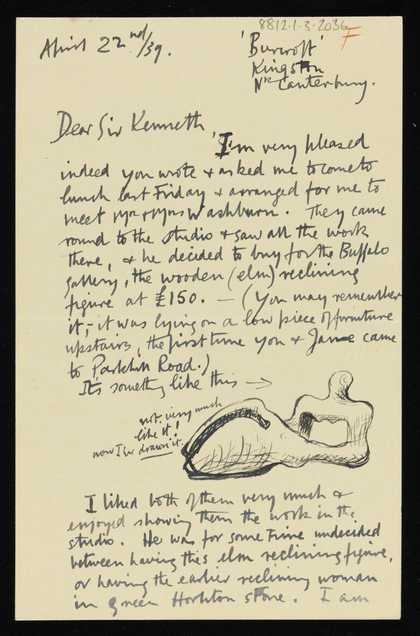 8812.1.3.2036
April 22nd/39.
'Burcroft'
Kingston
Nr Canterbury.
Dear Sir Kenneth,
I'm very pleased
indeed you wrote & asked me to come to
lunch last Friday & arranged for me to
meet Mr & Mrs Washburn. They came
round to the studio & saw all the work
there, & he decided to buy for the Buffalo
gallery, the wooden (elm) reclining
figure at £150. — (You may remember
it, – it was lying on a low piece of furniture
upstairs, the first time you & Jane came
to Parkhill Road.)
Its something like this →
not very much
like it!
now I've drawn it.
I liked both of them very much &
enjoyed showing them the work in the
studio. He was for some time undecided
between having this elm reclining figure,
or having the earlier reclining woman
in green Hornton stone. I am